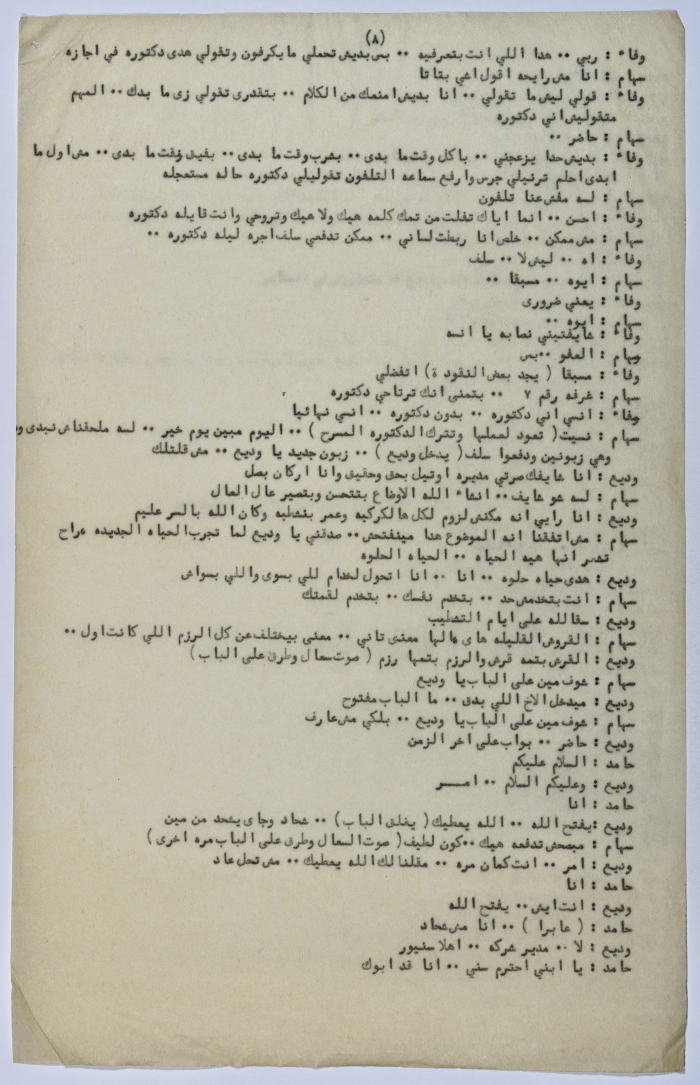 (٨)
وفاء : ربي ٠٠ هدا اللي انت بتعرفيه ٠٠ بس بديش تحملي ما يكرفون وتقولي هدى دكتوره في اجازه
سهام : انا مش رايحه اقول اعي بتاتا
وفاء : قولي ليش ما تقولي ٠٠ انا بديش امنعك من الكلام ٠٠ بتقدرى تقولي زى ما بدك ٠٠ المهم
متقوليش اني دكتوره
سهام : حاضر ٠٠
وفاء : بديش حدا يزعجني ٠٠ باكل وقت ما بدى ٠٠ بشرب وقت ما بدى ٠٠ بفيق وقت ما بدى ٠٠ مش اول ما
ابدى احلم ترنيلي جرس وارفع سماعه التلفون تقوليلي دكتوره حاله مستعجله
سهام : لسه مفش عنا تلفون
وفاء : احسن ٠٠ انما اياك تفلت من تمك كلمه هيك ولا هيك وتروحي وانت قايله دكتوره
سهام : مش ممكن ٠٠ خلص انا ربطت لساني ٠٠ ممكن تدفعي سلف اجره ليله دكتوره ٠٠
وفاء : اه ٠٠ ليش لا ٠٠ سلف
سهام : ايوه ٠٠ مسبقا ٠٠
وفاء : يعني ضرورى
سهام : ايوه ٠٠
وفاء : شايفتيني نصابه يا انسه
سهام : العفو ٠٠ بس
وفاء : مسبقا ( يجد بعض النقود ة ) اتفضلي
سهام : غرفه رقم ٧ ٠٠ بتمنى انك ترتاحي دكتوره
وفاء : انسي اني دكتوره ٠٠ بدون دكتوره ٠٠ انسي نهائيا
سهام : نسيت ( تعود لعملها وتترك الدكتوره المسرح ) ٠٠ اليوم مبين يوم خير ٠٠ لسه ملحقناش نبدى و
وهي زبونين ودفعوا سلف ( يدخل وديع ) ٠٠ زبون جديد يا وديع ٠٠ مش قلتلك
وديع : انا شايفك صرتي مديره اوتيل بحق وحقيق وانا اركان بصل
سهام : لسه شو شايف ٠٠ انشاء الله الاوضاع بتتحسن وبتصير عال العال
وديع : انا رايي انه مكنش لزوم لكل هالكركبه وعمر بنشطبه وكان الله بالسر عليم
سهام : مش اتفقنا انه الموضوع هدا مينفتحش ٠٠ صدقني يا وديع لما تجرب الحياه الجديده راح
تشعر انها هيه الحياه ٠٠ الحياه الحلوه
وديع : هدى حياه حلوه ٠٠ انا ٠٠ انا اتحول لخدام للي بسوى واللي بسواش
سهام : انت بتخدمش حد ٠٠ بتخدم نفسك ٠٠ بتخدم لقمتك
وديع : سقا لله على ايام التشطيب
سهام : القروش القليله هاى الها معنى تاني ٠٠ معنى بيختلف عن كل الرزم اللي كانت اول ٠٠
وديع : القرش بتمه قرش والرزم بتمها رزم ( صوت سعال وطرق على الباب )
سهام : شوف مين على الباب يا وديع
وديع : ميدخل الاخ اللي بدق ٠٠ ما الباب مفتوح
سهام : شوف مين على الباب يا وديع ٠٠ بلكي مش عارف
وديع : حاضر ٠٠ بواب على اخر الزمن
حامد : السلام عليكم
وديع : وعليكم السلام ٠٠ امـــر
حامد : انا
وديع : يفتح الله ٠٠ الله يعطيك ( يغلق الباب ) ٠٠ شحاد وجاى يشحد من مين
سهام : مبصحش تدفعه هيك ٠٠ كون لطيف ( صوت السعال وطرق على الباب مره اخرى )
وديع : امر ٠٠ انت كمان مره ٠٠ مقلنا لك الله يعطيك ٠٠ مش تحل عاد
حامد : انا
وديع : انت ايش ٠٠ يفتح الله
حامد : ( عابرا ) ٠٠ انا مش شحاد
وديع : لا ٠٠ مدير شركه ٠٠ اهلا سنيور
حامد : يا ابني احترم سني ٠٠ انا قد ابوك